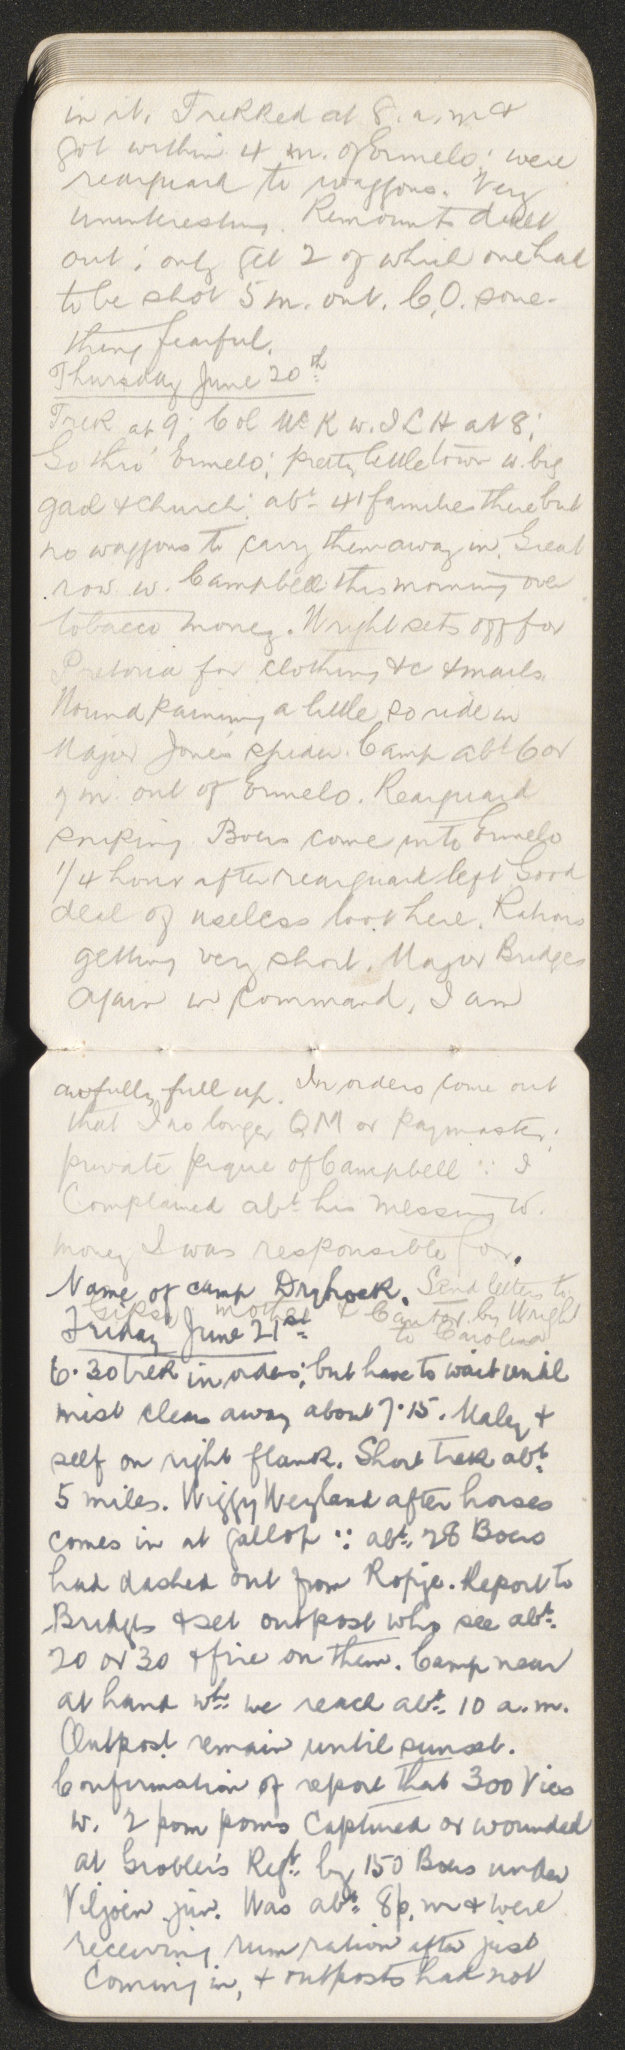 in it. Trekked at 8. a.m. &
got within 4 m. of Ermelo; were
rearguard to waggons. Very
uninteresting. Remounts dealt
out; only get 2 of which one had
to be shot 5 m. out. C.O. some-
thing fearful.
Thursday June 20th
Trek at 9; Col McK w. ILH at 8;
Go thro' Ermelo; pretty little town w. big
gaol & church; abt 41 families there but
no waggons to carry them away in. Great
row w. Campbell this morning over
tobacco money. Wright sets off for
Pretoria for clothing &c & mails.
Wound paining a little so ride in
Major Jones's spider. Camp abt 6 or
7 m. out of Ermelo. Rearguard
sniping Boers come into Ermelo
1/4 hour after rearguard left Good
deal of useless loot here. Rations
getting very short. Major Bridges
again in command, I am
awfully full up. In orders come out
that I no longer QM or paymaster;
private pique of Campbell ∵ I
complained abt his messing w.
money I was responsible for.
Name of camp Dryhoek. Send letters to
mother & by Wright
to Carolina
Friday June 21st
6.30 trek in orders; but have to wait until
mist clears away about 7.15. Maley &
self on right flank. Short trek abt
5 miles. Wiggy Weyland after horses
comes in at gallop ∵ abt 28 Boers
had dashed out from Kopje. Report to
Bridges & set outpost who see abt
20 or 30 & fire on them. Camp near
at hand wh we reach abt 10 a.m.
Outpost remain until sunset.
Confirmation of report that 300 Vics
w. 2 pom poms captured or wounded
at Grobler's Regt by 150 Boers under
Viljoen jun. Was abt 8 p.m & were
receiving rum ration after just
coming in, & outposts had not